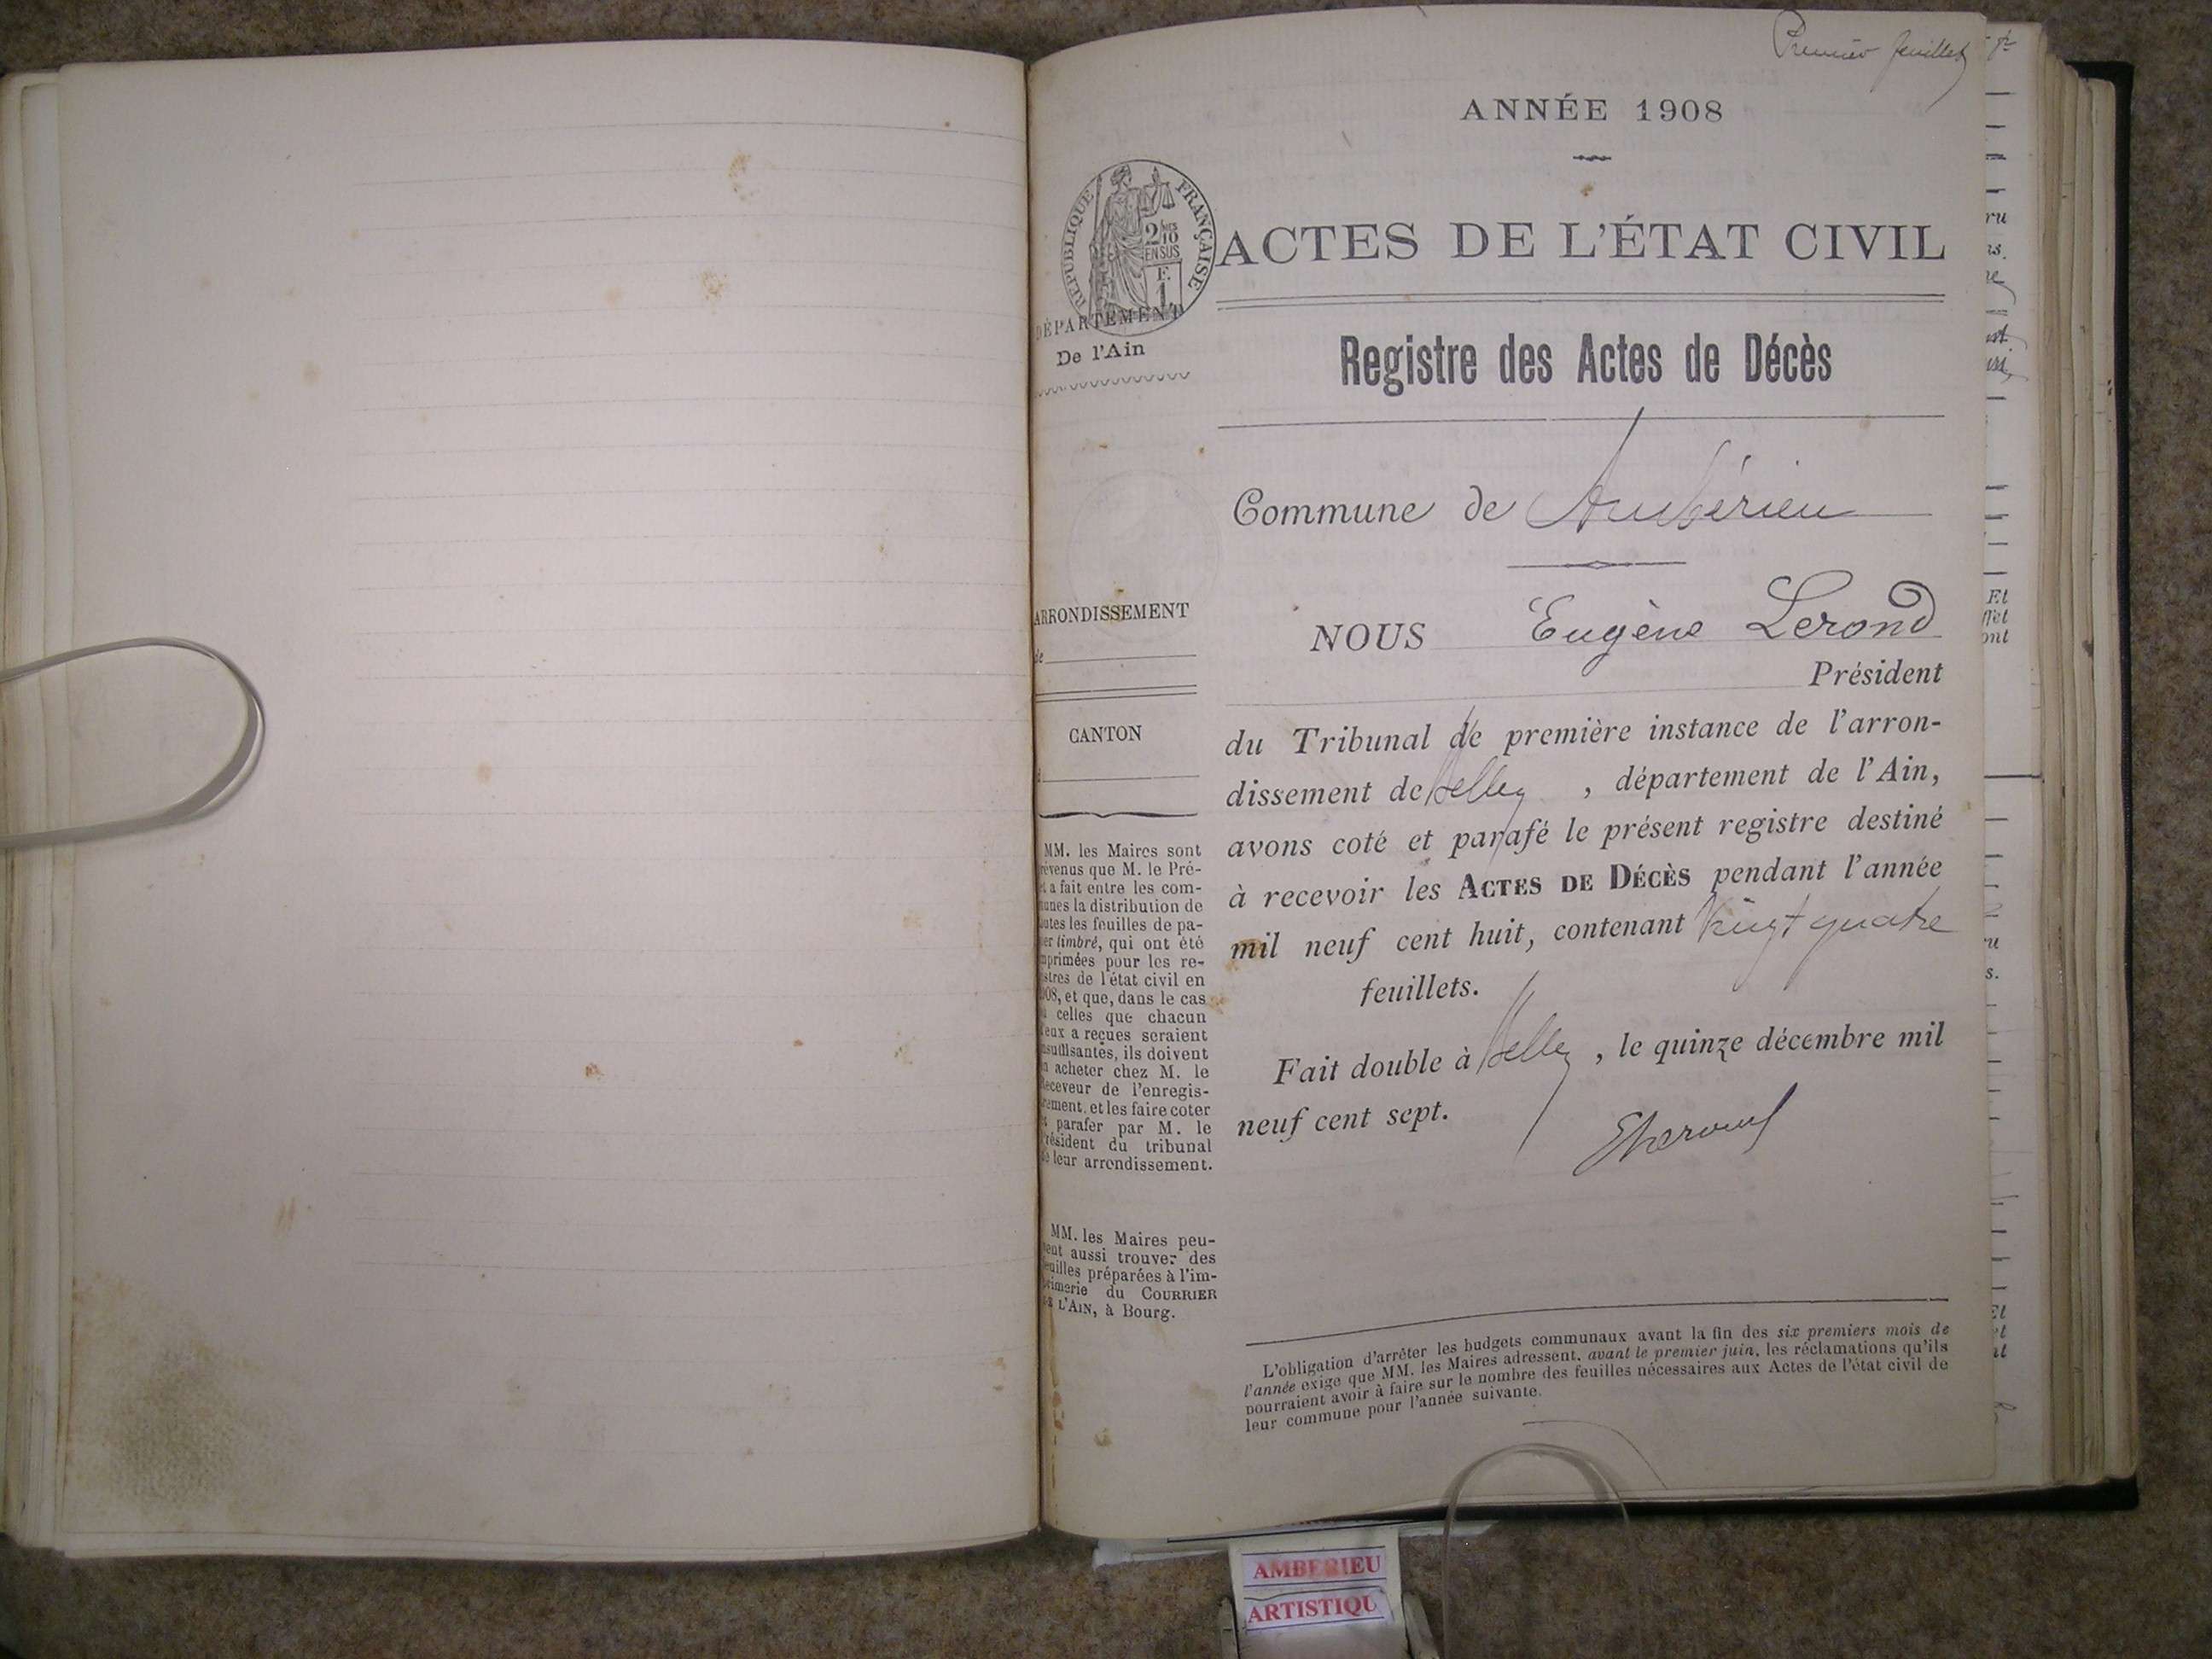 Premier feuillet
ANNÉE 1908
RÉPUBLIQUE FRANÇAISE
2/10
EN SUS
F.
1
ACTES DE L'ÉTAT CIVIL
DÉPARTEMENT
De l'Ain
Registre des Actes de Décès
Commune de Ambérieu
ARRONDISSEMENT
de
NOUS Eugène Lerond
Président
CANTON
du Tribunal de première instance de l'arron-
dissement de Belley , département de l'Ain,
avons coté et parafé le présent registre destiné
à recevoir les ACTES DE DÉCÈS pendant l'année
mil neuf cent huit, contenant Vingt quatre
feuillets.
Fait double à Belley , le quinze décembre mil
neuf cent sept.
MM. les Maires sont
révenus que M. le Pré-
t a fait entre les com-
unes la distribution de
utes les feuilles de pa-
er timbré, qui ont été
mprimées pour les re-
stres de l'état civil en
908, et que, dans le cas
celles que chacun
'eux a reçues seraient
nsuffisantes, ils doivent
n acheter chez M. le
eceveur de l'enregis-
rement, et les faire coter
t parafer par M. le
résident du tribunal
e leur arrondissement.
MM. les Maires peu-
ent aussi trouver des
euilles préparées à l'im-
rimerie du COURRIER
DE L'AIN, à Bourg.
L'obligation d'arrêter les budgets communaux avant la fin des six premiers mois de
l'année exige que MM. les Maires adressent, avant le premier juin, les réclamations qu'ils
pourraient avoir à faire sur le nombre des feuilles nécessaires aux Actes de l'état civil de
leur commune pour l'année suivante.
AMBERIEU
ARTISTIQU